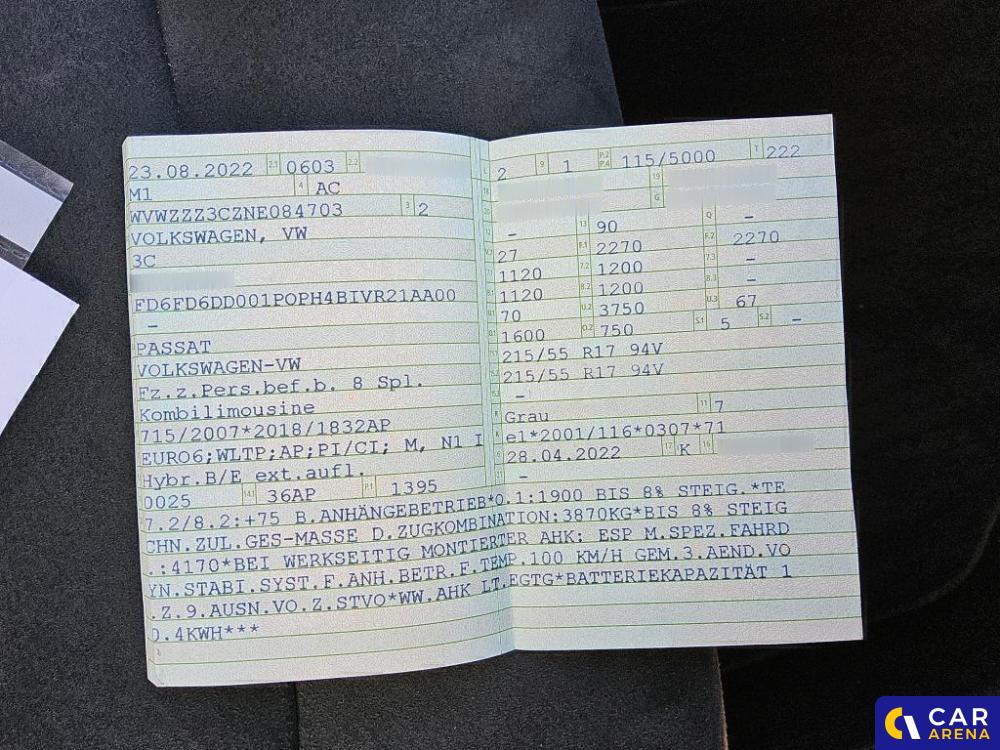 23.08.2022 2.1 0603 2.2
M1 4 AC
WVWZZZ3CZNE084703 3 2
VOLKSWAGEN, VW
3C
FD6FD6DD001POPH4BIVR21AA00
–
PASSAT
VOLKSWAGEN-VW
Fz.z.Pers.bef.b. 8 Spl.
Kombilimousine
715/2007*2018/1832AP
EURO6;WLTP;AP;PI/CI; M, N1 I
Hybr.B/E ext.aufl.
0025 14.1 36AP P.1 1395
L 2 9 1 P.2 P.4 115/5000 T 222
18 19
20 G
12 – 13 90 Q –
V.7 27 F.1 2270 F.2 2270
7.1 1120 7.2 1200 7.3 –
8.1 1120 8.2 1200 8.3 –
U.1 70 U.2 3750 U.3 67
O.1 1600 O.2 750 S.1 5 S.2 –
15.1 215/55 R17 94V
15.2 215/55 R17 94V
15.3 –
R Grau 11 7
K e1*2001/116*0307*71
6 28.04.2022 17 K 16
21 –
7.2/8.2:+75 B.ANHÄNGEBETRIEB*O.1:1900 BIS 8% STEIG.*TE
CHN.ZUL.GES-MASSE D.ZUGKOMBINATION:3870KG*BIS 8% STEIG
.:4170*BEI WERKSEITIG MONTIERTER AHK: ESP M.SPEZ.FAHRD
YN.STABI.SYST.F.ANH.BETR.F.TEMP.100 KM/H GEM.3.AEND.VO
.Z.9.AUSN.VO.Z.STVO*WW.AHK LT.EGTG*BATTERIEKAPAZITÄT 1
0.4KWH***
CAR
ARENA